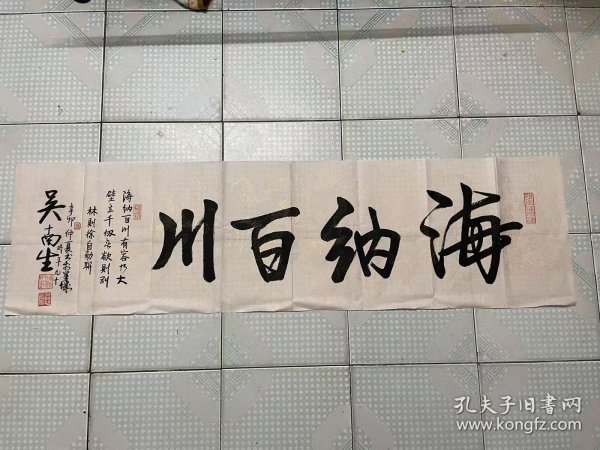 海纳百川
海纳百川有容乃大
壁立千仞无欲则刚
林则徐自勉联
辛卯仲夏书于羊城
时年九十
吴南生
孔夫子旧书网
www.kongfz.com